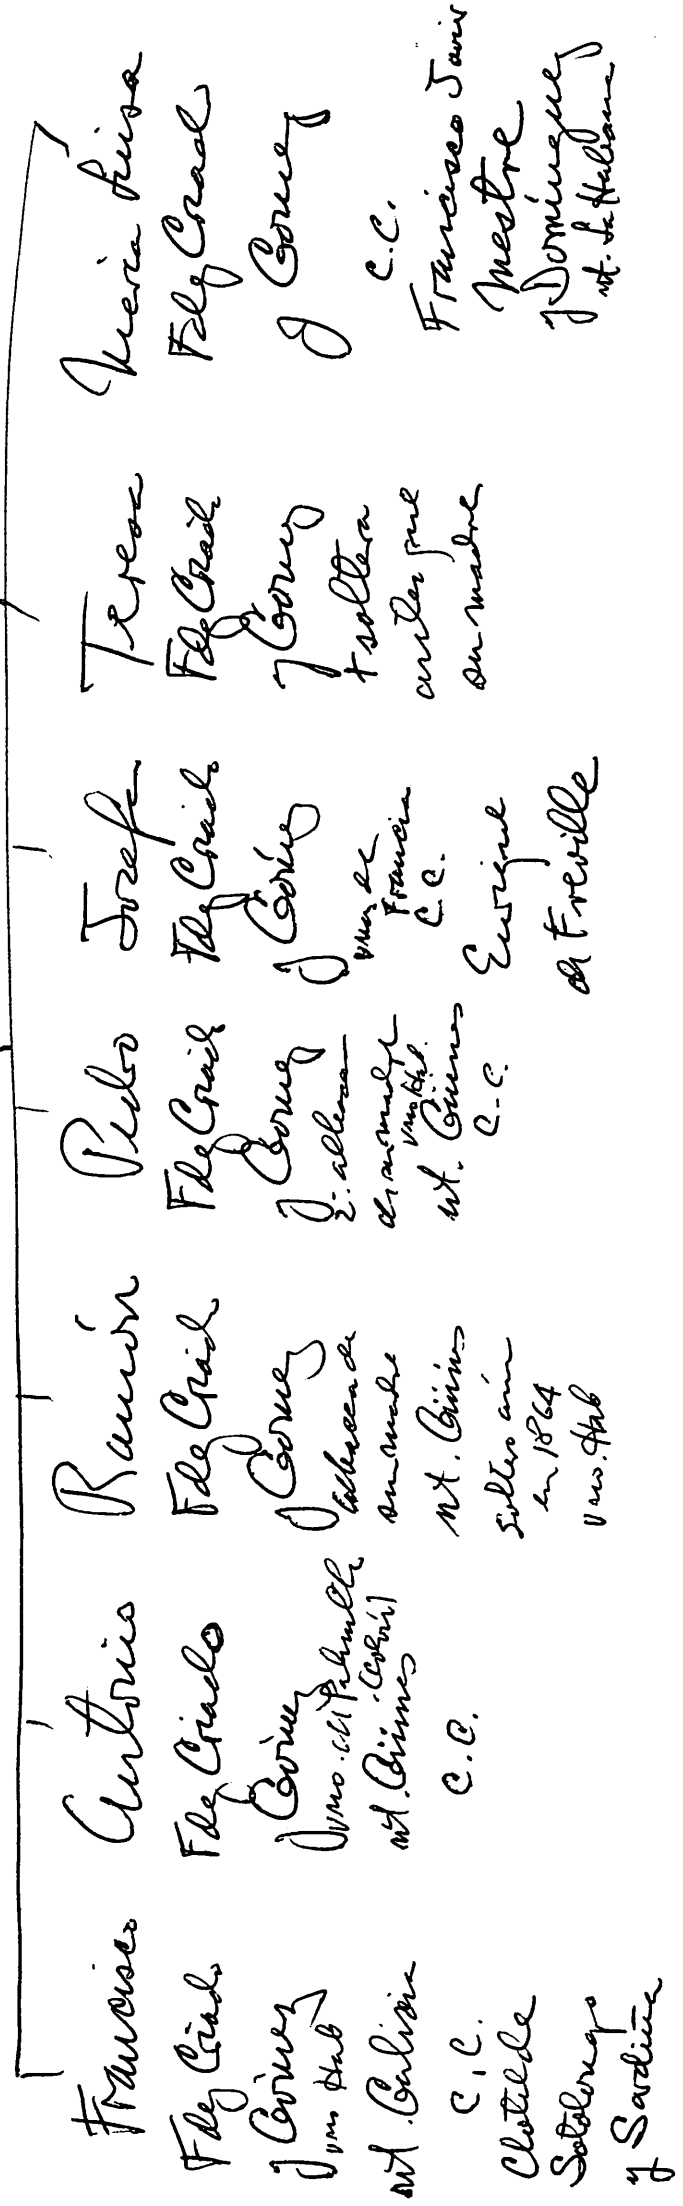 Francisco
Fdez Criado
y Gómez
vno Hab
nt. Galicia
C.C.
Clotilde
Sotolongo
y Sardiña
Antonio
Fdez Criado
y Gómez
vno. de
nt. Güines
C.C.
Ramón
Fdez Criado
y Gómez
albacea de
su madre
nt. Güines
soltero aún
en 1864
vno. Hab
Pedro
Fdez Criado
y Gómez
2º albacea
de su madre
vno Hab.
nt. Güines
C.C.
Josefa
Fdez Criado
y Gómez
vna de
Francia
C.C.
Enrique
de Freville
Teresa
Fdez Criado
y Gómez
+ soltera
antes que
su madre
María Luisa
Fdez Criado
y Gómez
C.C.
Francisco Javier
Mestre
y Domínguez
nt. La Habana